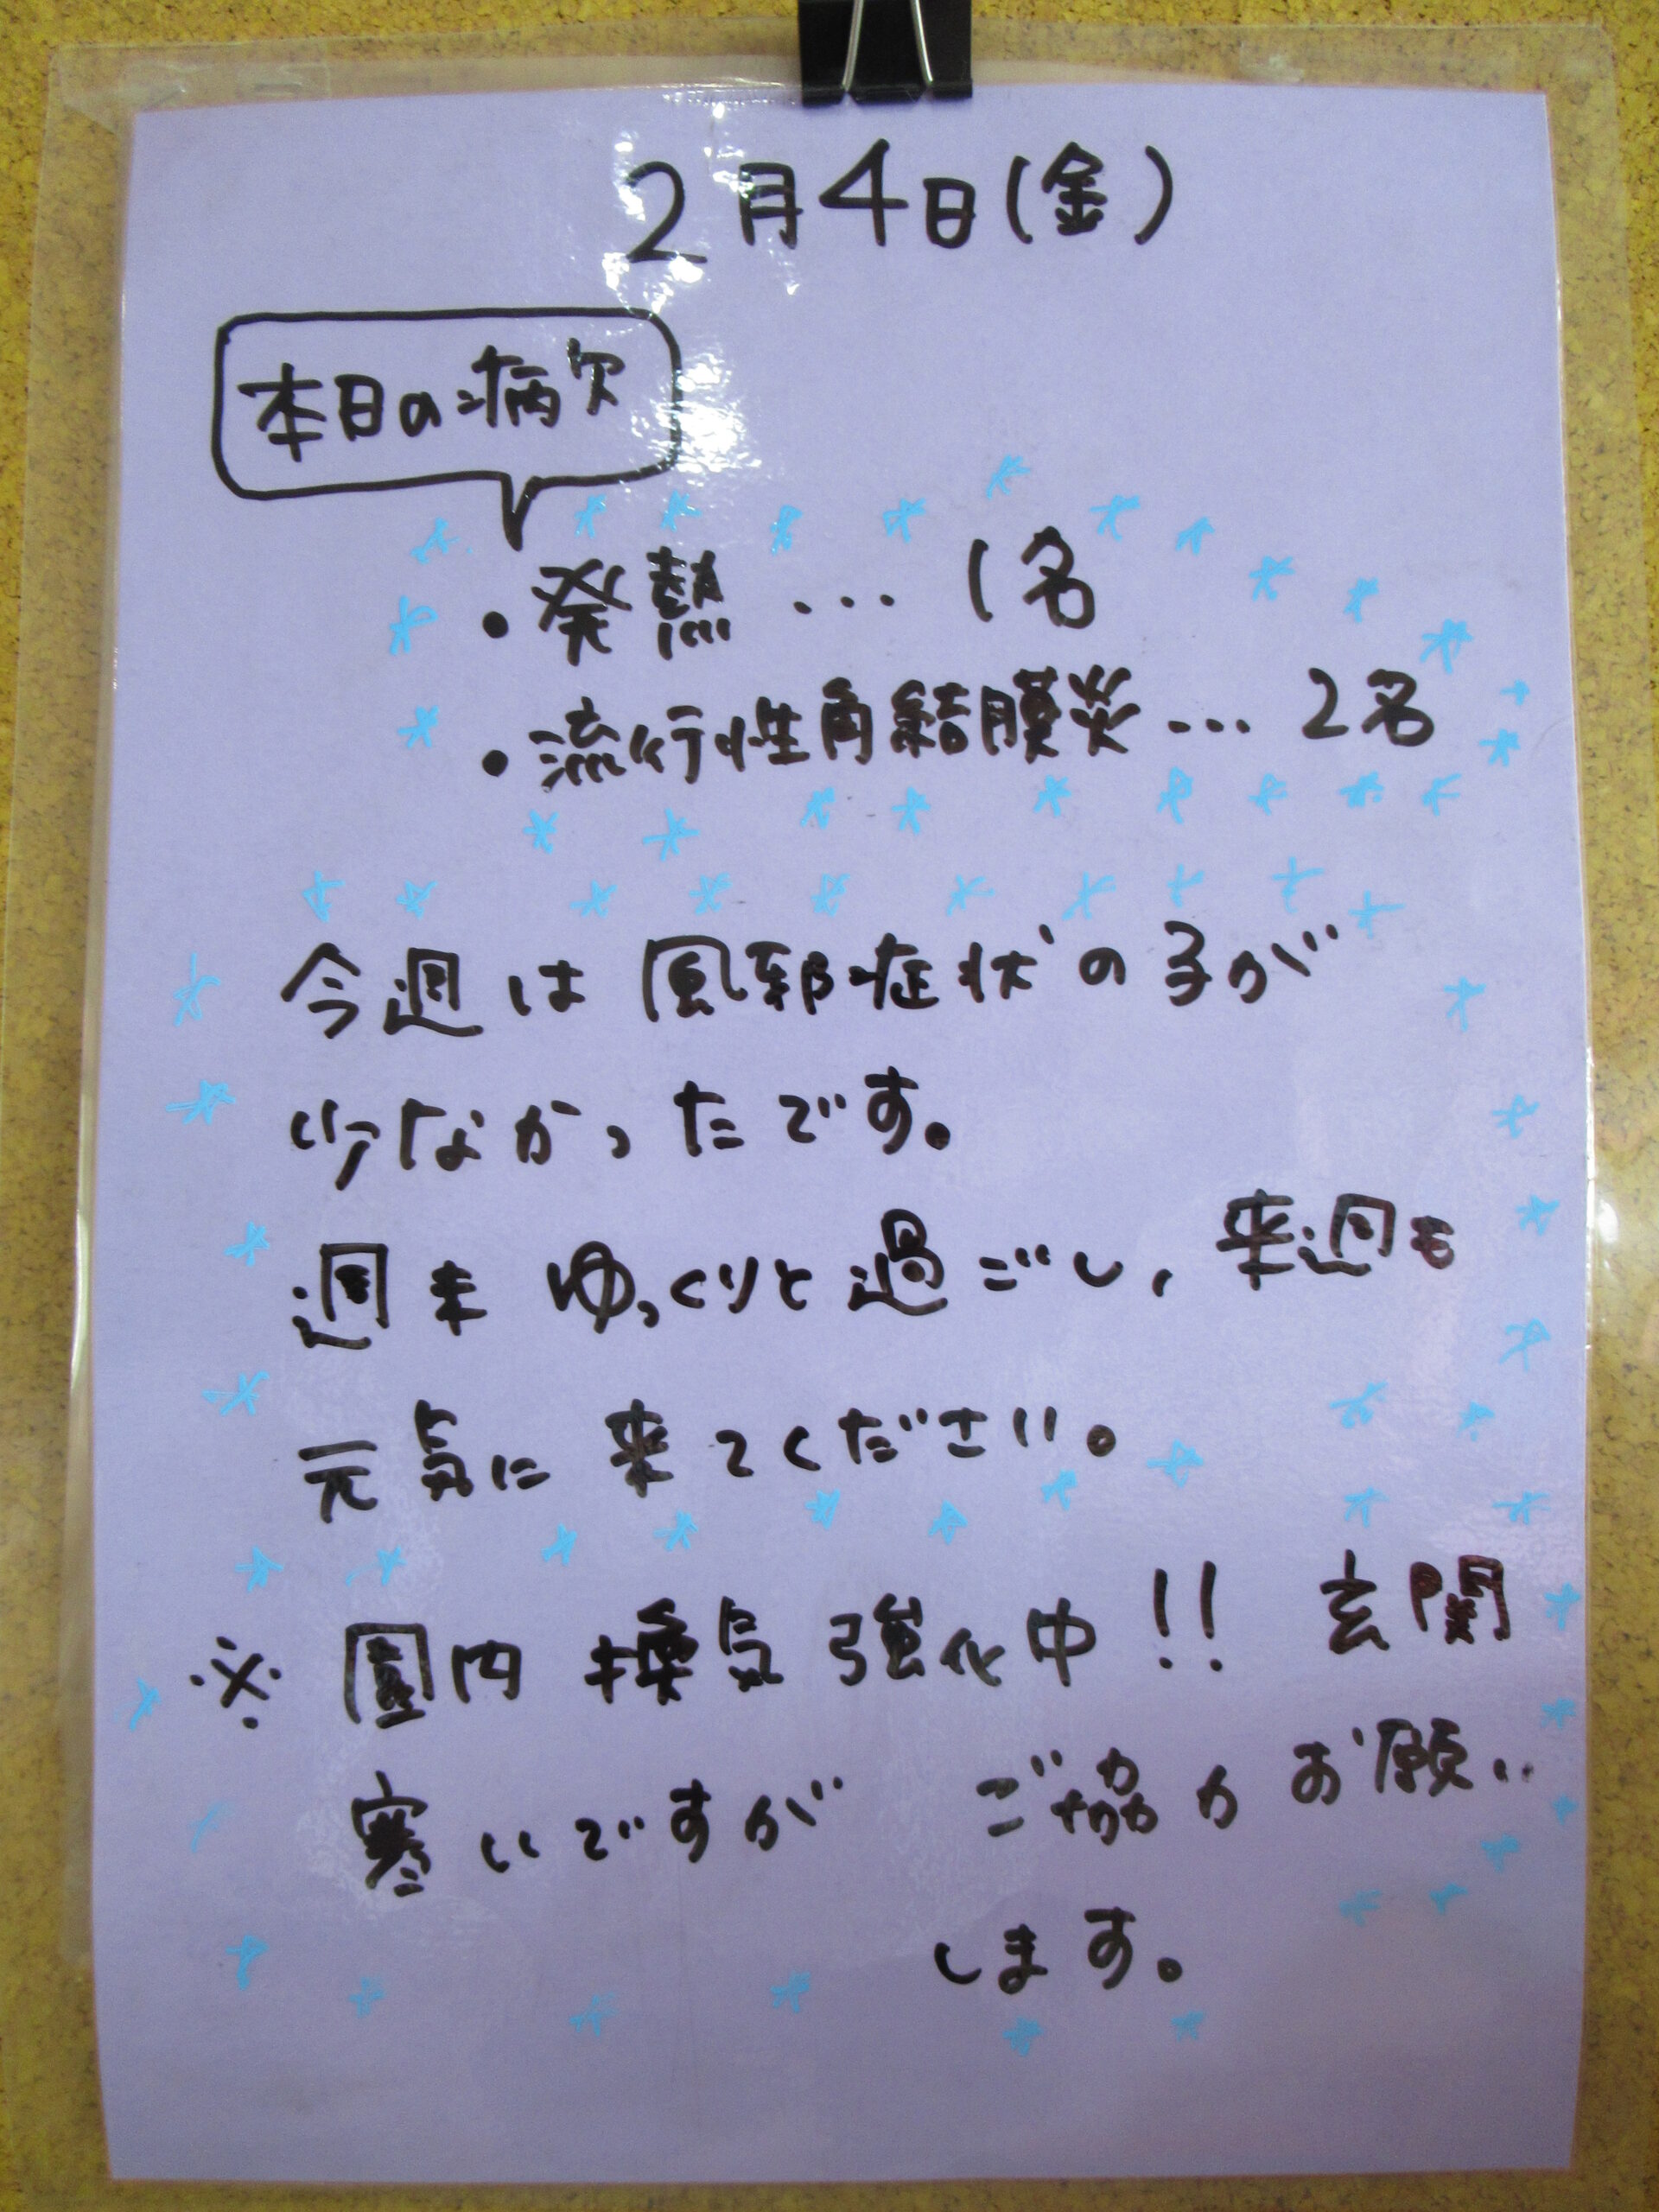 2月4日(金)
本日の病欠
・発熱 ... 1名
・流行性角結膜炎 ... 2名
今週は風邪症状の子が
少なかったです。
週末ゆっくりと過ごし、来週も
元気に来てください。
※ 園内 換気 強化中!! 玄関
寒いですが ご協力お願い
します。